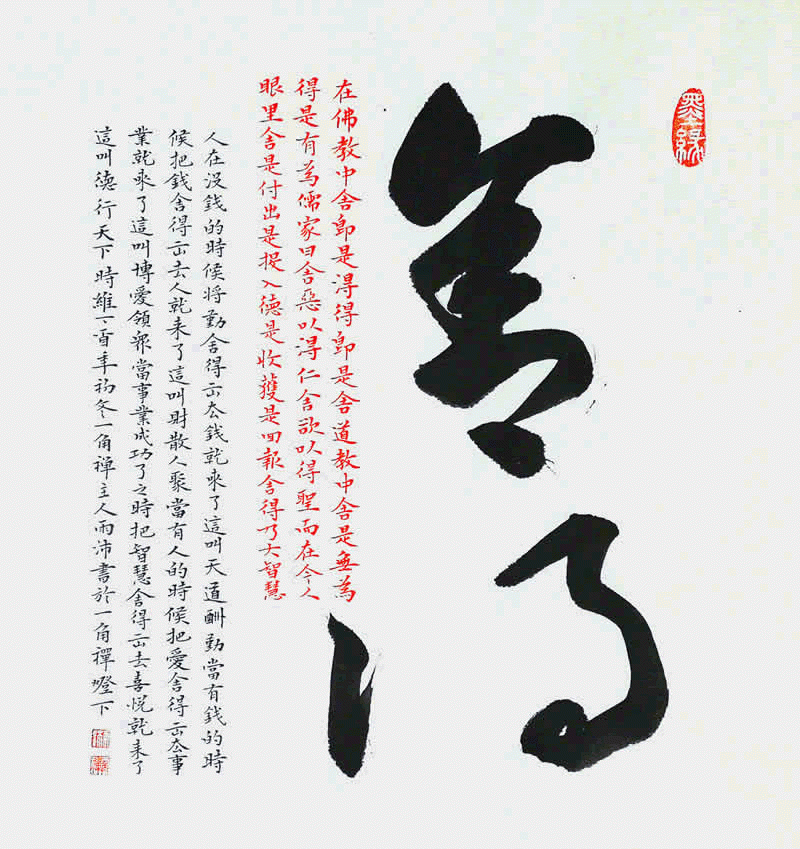 墨緣
舍得
在佛教中舍卽是得得卽是舍道教中舍是無為
得是有為儒家曰舍惡以得仁舍欲以得聖而在今人
眼里舍是付出是投入德是收獲是回報舍得乃大智慧
人在沒錢的時候将勤舍得出去錢就來了這叫天道酬勤當有錢的時
候把錢舍得出去人就来了這叫財散人聚當有人的時候把愛舍得出去事
業就來了這叫博愛領衆當事業成功了之時把智慧舍得出去喜悅就来了
這叫德行天下 時維丁酉年初冬一角禪主人雨沛書於一角禪燈下